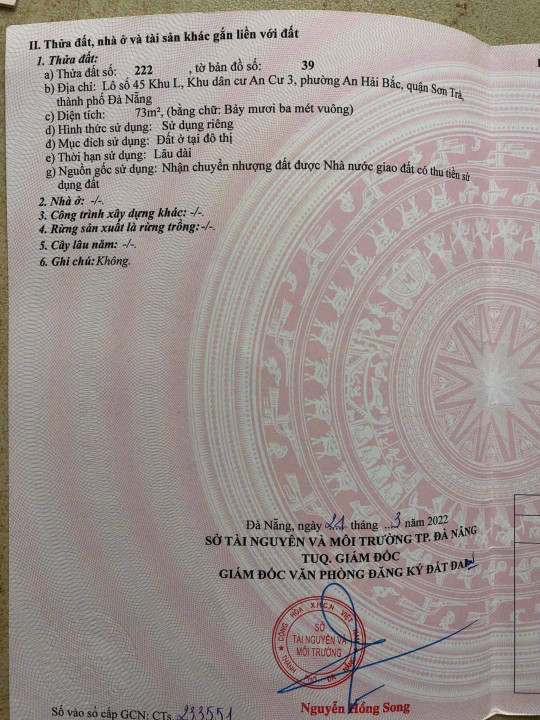 II. Thửa đất, nhà ở và tài sản khác gắn liền với đất
1. Thửa đất:
a) Thửa đất số: 222 , tờ bản đồ số: 39
b) Địa chỉ: Lô số 45 Khu L, Khu dân cư An Cư 3, phường An Hải Bắc, quận Sơn Trà,
thành phố Đà Nẵng
c) Diện tích: 73m², (bằng chữ: Bảy mươi ba mét vuông)
d) Hình thức sử dụng: Sử dụng riêng
đ) Mục đích sử dụng: Đất ở tại đô thị
e) Thời hạn sử dụng: Lâu dài
g) Nguồn gốc sử dụng: Nhận chuyển nhượng đất được Nhà nước giao đất có thu tiền sử
dụng đất
2. Nhà ở: -/-.
3. Công trình xây dựng khác: -/-.
4. Rừng sản xuất là rừng trồng:-/-.
5. Cây lâu năm: -/-.
6. Ghi chú:Không.
Đà Nẵng, ngày 21 tháng ..3 năm 2022
SỞ TÀI NGUYÊN VÀ MÔI TRƯỜNG TP. ĐÀ NẴNG
TUQ. GIÁM ĐỐC
GIÁM ĐỐC VĂN PHÒNG ĐĂNG KÝ ĐẤT ĐAI
CỘNG HÒA X.H.C.N VIỆT NAM
SỞ
TÀI NGUYÊN VÀ
MÔI TRƯỜNG
THÀNH PHỐ ĐÀ NẴNG
Nguyễn Hồng Song
Số vào sổ cấp GCN: CTs 233551